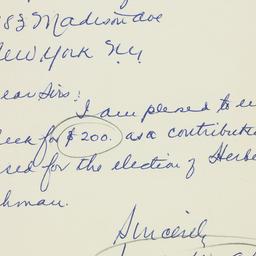 83 Madison Ave
New York N.Y.
ear Sirs:
I am pleased to en
eck for $200. as a contributi
sed for the election of Herbe
hman.
Sincerely